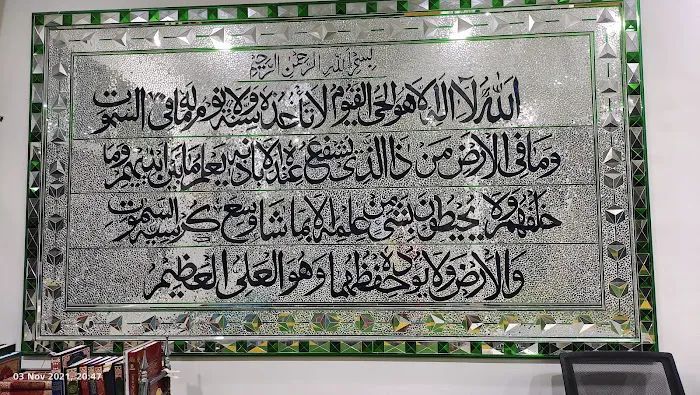 بسم الله الرحمن الرحيم
الله لا اله الا هو الحي القيوم لا تأخذه سنة ولا نوم له ما في السموت
وما في الأرض من ذا الذي يشفع عنده الا باذنه يعلم ما بين ايديهم وما
خلفهم ولا يحيطون بشيء من علمه الا بما شاء وسع كرسيه السموت
والأرض ولا يؤده حفظهما وهو العلي العظيم
03 Nov 2021, 20:47